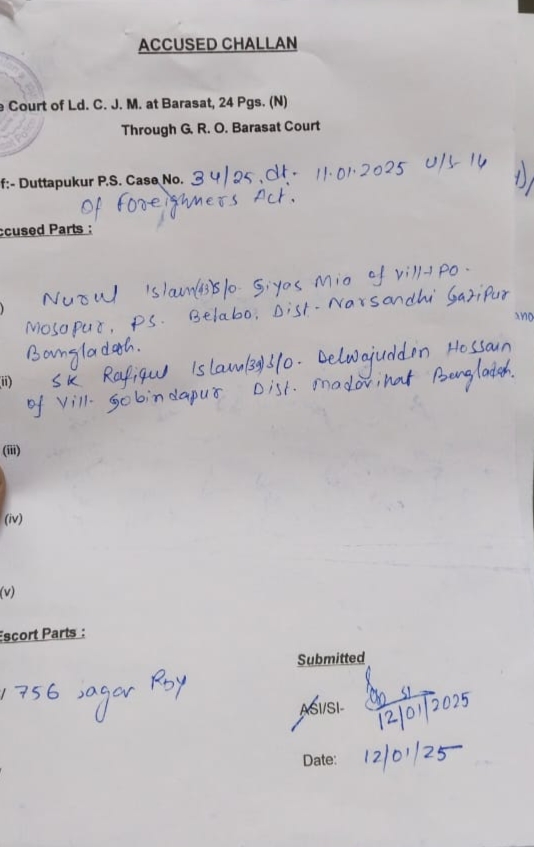 ACCUSED CHALLAN
Court of Ld. C. J. M. at Barasat, 24 Pgs. (N)
Through G. R. O. Barasat Court
f:- Duttapukur P.S. Case No. 34/25, dt- 11.01.2025 U/S- 14
of Foreighners Act.
ccused Parts :
Nurul Islam(43)S/o- Giyas Mia of Vill+Po-
Mosapur, PS. Belabo, Dist- Narsandhi Gazipur
Bangladesh.
ii) SK Rafiqul Islam(39)S/o- Delwajuddin Hossain
of Vill- Gobindapur Dist. Madorihat Bangladesh.
(iii)
(iv)
(v)
Escort Parts :
756 Sagar Roy
Submitted
ASI/SI- SI
12/01/2025
Date: 12/01/25